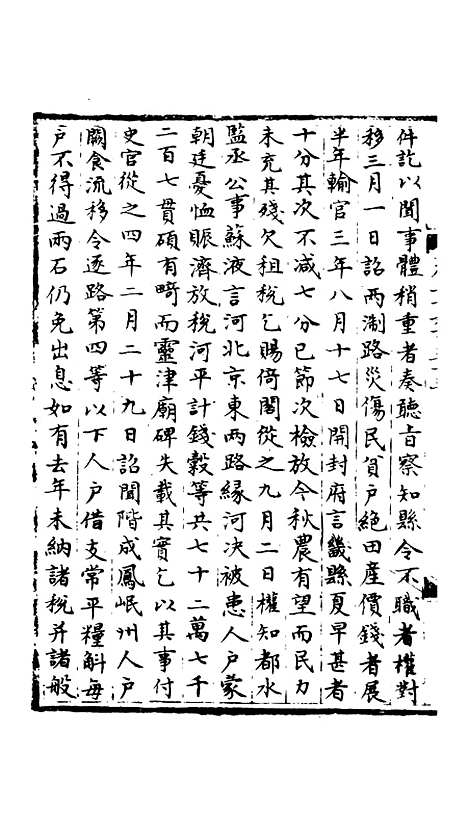 件訖以聞事體稍重者奏聽旨察知縣令不職者權對
移三月一日詔兩淛路災傷民貧户絶田產價錢者展
半年輸官三年八月十七日開封府言畿縣夏旱甚者
十分其次不減七分已節次檢放今秋農有望而民力
未充其殘欠租稅乞賜倚閣從之九月二日權知都水
監丞公事蘇液言河北京東兩路緣河決被患人户蒙
朝廷憂恤賑濟放稅河平計錢穀等共七十二萬七千
二百七貫碩有畸而靈津廟碑失載其實乞以其事付
史官從之四年二月二十九日詔聞階成鳳岷州人户
闕食流移令逐路第四等以下人户借支常平糧斛每
户不得過兩石仍免出息如有去年未納諸稅并諸般